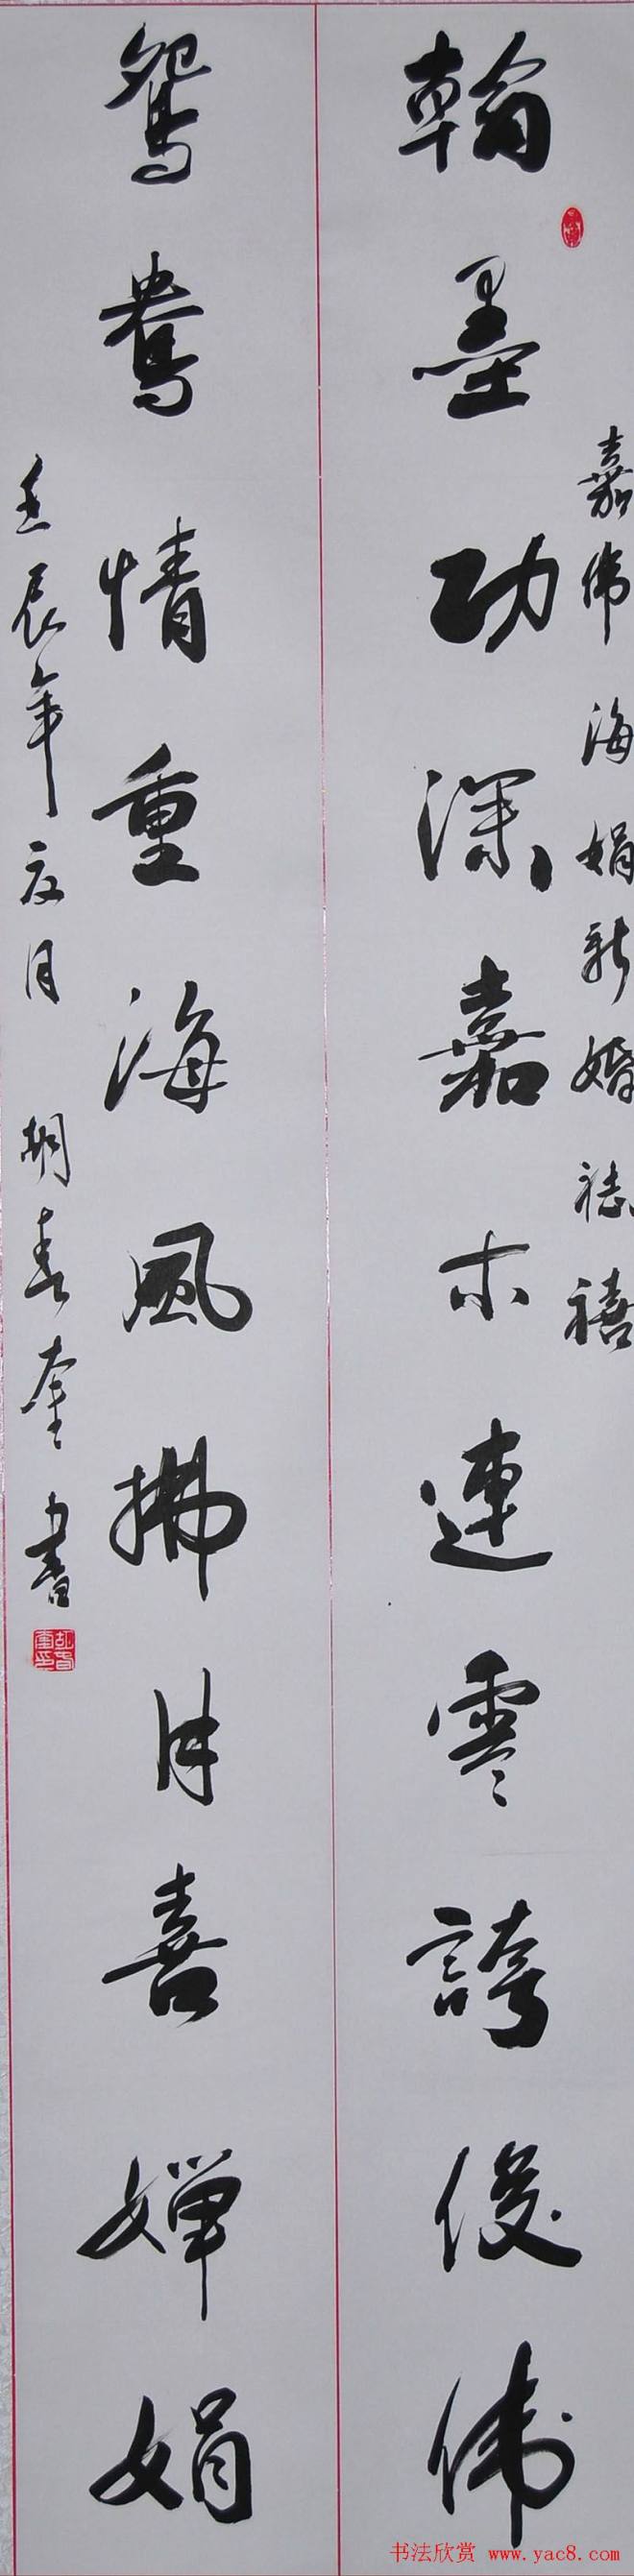 嘉伟海娟新婚志禧
翰墨功深嘉木連雲誇俊伟
鸳鸯情重海風拂月喜婵娟
壬辰年夏月 胡春奎书
书法欣赏 www.yac8.com